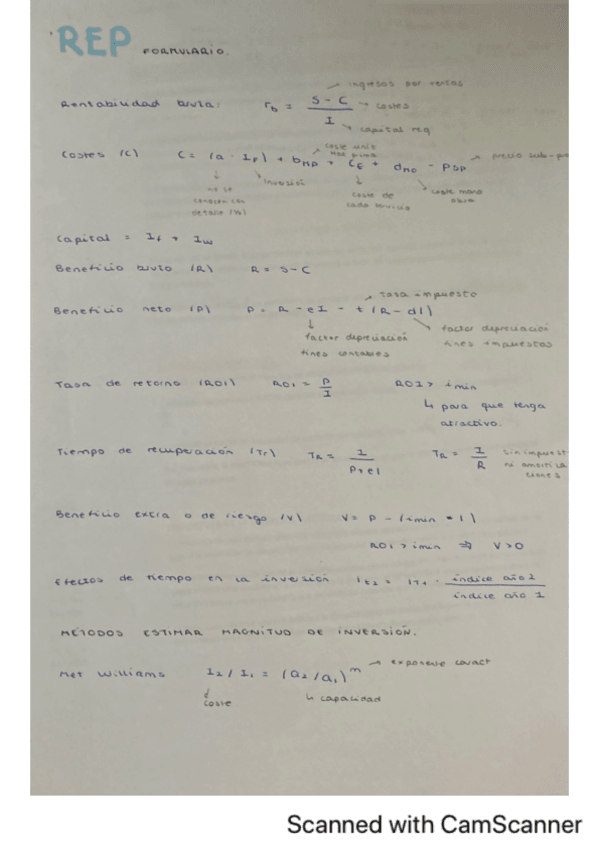 REP FORMULARIO.
ingresos por ventas
Rentabilidad bruta: r_b = (S - C) / I
costes
capital req
Costes (C) C = (a · I_F) + b_MP + C_E + d_MO - P_SP
coste unit mat prima
precio sub-p
no se conocen con detalle (%)
inversión
coste de cada servicio
coste mano obra
Capital = I_F + I_W
Beneficio bruto (R) R = S - C
tasa impuesto
Beneficio neto (P) P = R - eI - t (R - dI)
factor depreciación fines contables
factor depreciación fines impuestos
Tasa de retorno (ROI) ROI = P / I ROI > imin
↳ para que tenga atractivo.
Tiempo de recuperación (Tr) T_R = I / P+eI T_R = I / R
sin impuest ni amortiza ciones
Beneficio extra o de riesgo (V) V = P - (imin * I)
ROI > imin ⇒ V > 0
Efectos de tiempo en la inversión I_t2 = I_t1 · índice año 2 / índice año 1
MÉTODOS ESTIMAR MAGNITUD DE INVERSIÓN.
Met Williams I_2 / I_1 = (a_2 / a_1)^m → exponente caract
coste
↳ capacidad
Scanned with CamScanner